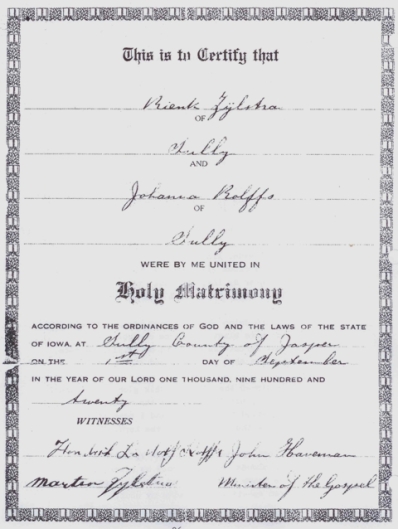 This is to Certify that
Rienk Zylstra
OF
Sully
AND
Johanna Rolffs
OF
Sully
WERE BY ME UNITED IN
Holy Matrimony
ACCORDING TO THE ORDINANCES OF GOD AND THE LAWS OF THE STATE
OF IOWA, AT Sully County of Jasper
ON THE 1st DAY OF September
IN THE YEAR OF OUR LORD ONE THOUSAND, NINE HUNDRED AND
twenty
WITNESSES
John Haveman
Martin Zylstra Minister of the Gospel